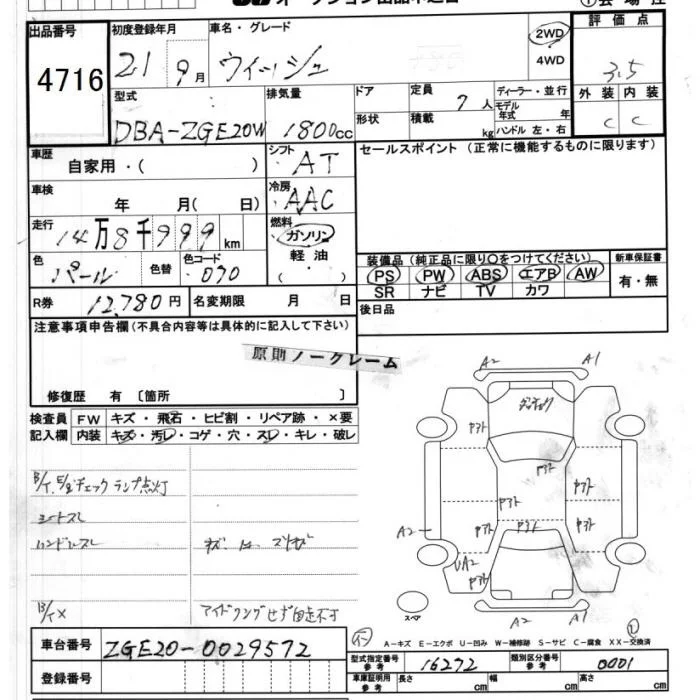 出品番号
4716
初度登録年月
21 9月
車名・グレード
ウィッシュ
2WD
4WD
評価点
3.5
外装 内装
C C
型式
DBA-ZGE20W
排気量
1800cc
ドア
形状
定員 7人
積載 kg
ディーラー・並行
モデル年式 年
ハンドル 左・右
車歴
自家用・( )
シフト
AT
セールスポイント (正常に機能するものに限ります)
車検
年 月( 日)
冷房
AAC
走行
14万8千999km
燃料
ガソリン
軽油
・( )
色
パール
色替
色コード
070
装備品(純正品に限り〇をつけてください)
PS PW ABS エアB AW
SR ナビ TV カワ
新車保証書
有・無
R券 12,780円
名変期限 月 日
後日品
注意事項申告欄(不具合内容等は具体的に記入して下さい)
原則ノークレーム
修復歴 有 〔箇所 〕
検査員記入欄
FW キズ・飛石・ヒビ割・リペア跡・×要
内装 キズ・汚レ・コゲ・穴・スレ・キレ・破レ
チェックランプ点灯
シートスレ
ハンドルスレ
アイドリングせず自走不可
A2 A1
A2
UA2
A2 A1
スペア
A-キズ E-エクボ U-凹み W-補修跡 S-サビ C-腐食 XX-交換済
車台番号 ZGE20-0029572
型式指定番号参考 16272
類別区分番号参考 0001
登録番号
車庫証明用参考 長さ cm 幅 cm 高さ cm